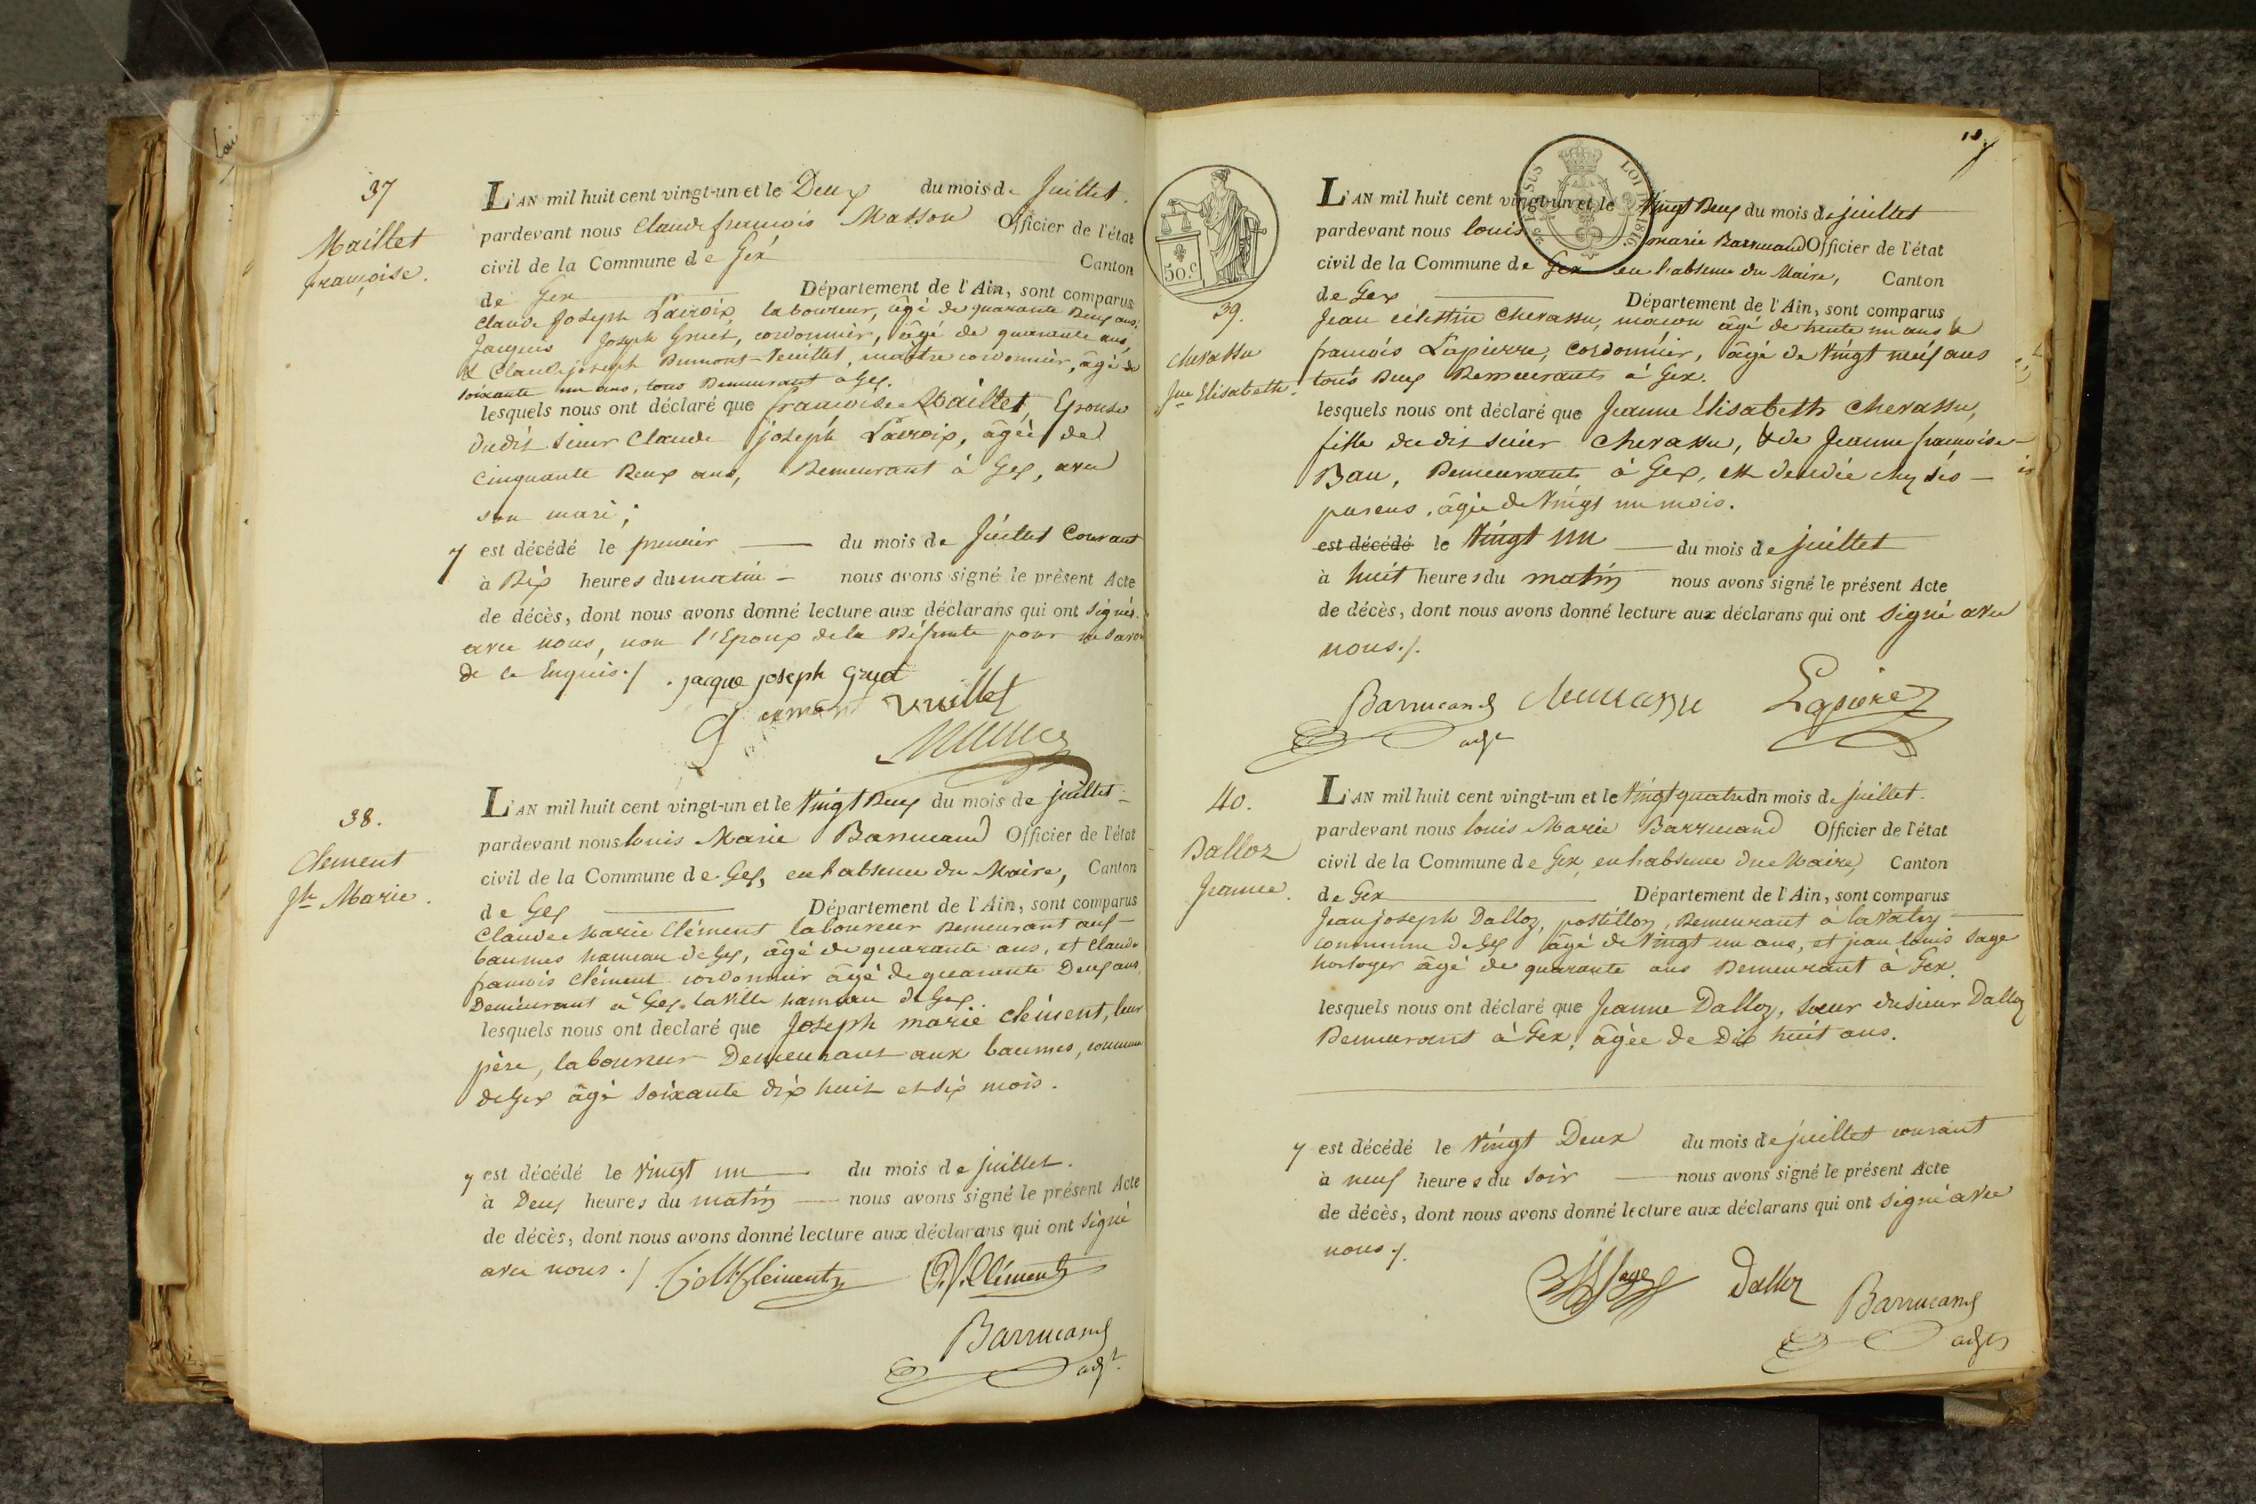 37
Maillet
françoise.
L'AN mil huit cent vingt-un et le Deux du mois de Juillet.
pardevant nous Claude françois Masson Officier de l'état
civil de la Commune de Géx Canton
de Gex Département de l'Ain, sont comparus
Claude Joseph Lacroix, laboureur, âgé de quarante Deux ans,
Jacques Joseph Gruet, cordonnier, âgé de quarante ans,
& Claude joseph maître cordonnier, âgé de
soixante un ans, tous Demeurant à Gex.
lesquels nous ont déclaré que françoise Maillet, Epouse
dudit sieur Claude joseph Lacroix, âgée de
cinquante Deux ans, Demeurant à Gex, avec
son mari;
y est décédé le premier du mois de Juillet Courant
à Dix heures du matin nous avons signé le présent Acte
de décès, dont nous avons donné lecture aux déclarans qui ont signés.
avec nous, non l'Epoux de la Défunte pour ne savoir
de ce Enquis./. jacque joseph Gruet
vuillet
38.
Clement
Jh Marie.
L'AN mil huit cent vingt-un et le Vingt Deux du mois de juillet
pardevant nous louis Marie Barrucand Officier de l'état
civil de la Commune de Gex, en l'absence du Maire, Canton
de Gex Département de l'Ain, sont comparus
Claude Marie Clément laboureur Demeurant aux
baumes hameau de Gex, âgé de quarante ans, et Claude
françois Clément cordonnier âgé de quarante Deux ans,
Demeurant à Gex-la Ville hameau de Gex.
lesquels nous ont declaré que Joseph marie clément, leur
père, laboureur Demeurant aux baumes, commune
de Gex âgé soixante dix huit et six mois.
y est décédé le Vingt un du mois de juillet.
à Deux heures du matin nous avons signé le présent Acte
de décès, dont nous avons donné lecture aux déclarans qui ont signé
avec nous ./. C: M: Clement C. f. Clément
Barrucand
adjt.
18
50.c
LOI 1816.
39.
Cherassu
Jne Elisabeth.
L'AN mil huit cent vingt-un et le Vingt Deux du mois de juillet
pardevant nous louis marie Barrucand Officier de l'état
civil de la Commune de Gex en l'absence du Maire, Canton
de Gex Département de l'Ain, sont comparus
Jean célestin Cherassu, maçon âgé de trente un ans &
françois Lapierre, cordonnier, âgé de Vingt neuf ans
tous Deux Demeurants à Gex.
lesquels nous ont déclaré que Jeanne Elisabeth Cherassu,
fille du dit sieur Cherassu, & de Jeanne françoise
Bau, Demeurants à Gex, est décédée chez ses
parens, âgée de Vingt un mois.
est décédé le Vingt un du mois de juillet
à huit heures du matin nous avons signé le présent Acte
de décès, dont nous avons donné lecture aux déclarans qui ont signé avec
nous./.
Barrucand Lapierre
adjt
40.
Dalloz
Jeanne.
L'AN mil huit cent vingt-un et le Vingt quatre du mois de juillet.
pardevant nous louis Marie Barrucand Officier de l'état
civil de la Commune de Gex, en l'absence du Maire, Canton
de Gex Département de l'Ain, sont comparus
Jean joseph Dalloz, postillon, Demeurant à
commune de Gex âgé de Vingt un ans, et jean louis Sage
horloger âgé de quarante ans Demeurant à Gex.
lesquels nous ont déclaré que Jeanne Dalloz, sœur du sieur Dalloz
Demeurant à Gex, âgée de Dix huit ans.
y est décédé le Vingt Deux du mois de juillet courant
à neuf heures du soir nous avons signé le présent Acte
de décès, dont nous avons donné lecture aux déclarans qui ont signé avec
nous./.
Sage Dalloz Barrucand
adjt